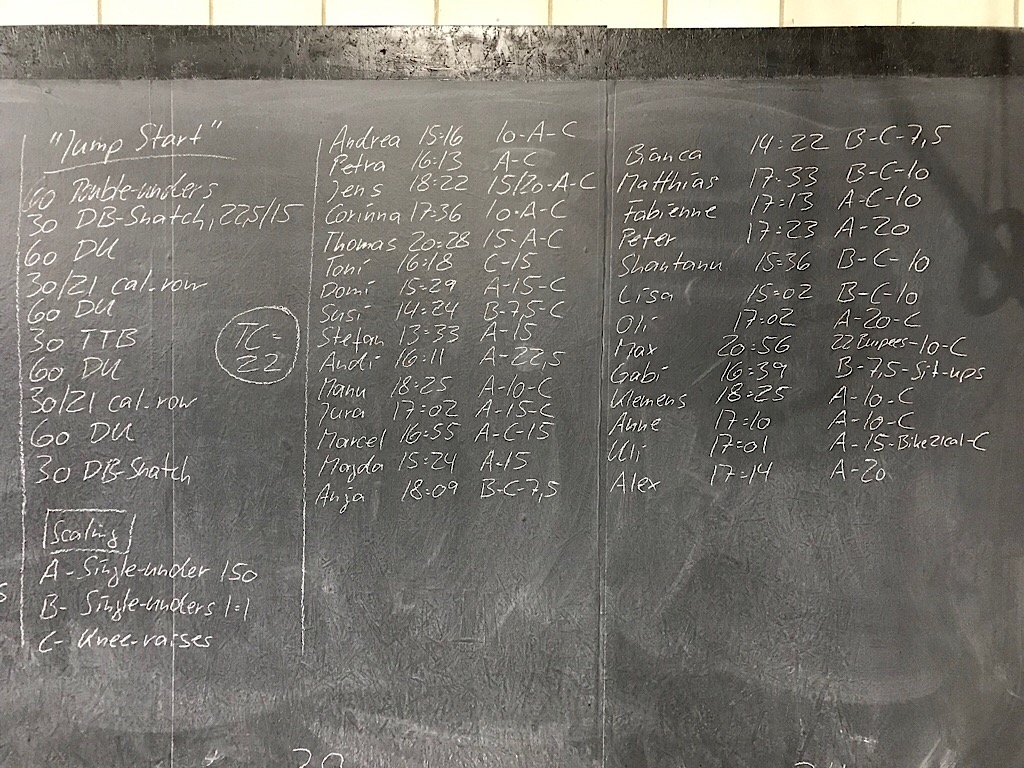 "Jump Start"
60 Double-unders
30 DB-Snatch, 22,5/15
60 DU
30/21 cal-row
60 DU
30 TTB
60 DU
30/21 cal-row
60 DU
30 DB-Snatch
TC=
22
Scaling
A - Single-under 150
B- Single-unders 1:1
C- Knee-raises
Andrea 15:16 10-A-C
Petra 16:13 A-C
Jens 18:22 15/20-A-C
Corinna 17:36 10-A-C
Thomas 20:28 15-A-C
Toni 16:18 C-15
Domi 15:29 A-15-C
Susi 14:24 B-7,5-C
Stefan 13:33 A-15
Andi 16:11 A-22,5
Manu 18:25 A-10-C
Jura 17:02 A-15-C
Marcel 16:55 A-C-15
Magda 15:24 A-15
Anja 18:09 B-C-7,5
Bianca 14:22 B-C-7,5
Matthias 17:33 B-C-10
Fabienne 17:13 A-C-10
Peter 17:23 A-20
Shantanu 15:36 B-C-10
Lisa 15:02 B-C-10
Olli 17:02 A-20-C
Max 20:56 22 -10-C
Gabi 16:39 B-7,5-Sit-ups
Klemens 18:25 A-10-C
Anne 17:10 A-10-C
Uli 17:01 A-15-Bike21cal-C
Alex 17:14 A-20